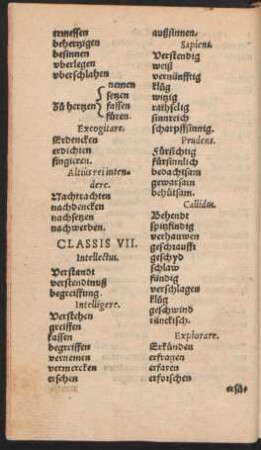 ermessen
behertzigen
besinnen
vberlegen
vberschlahen
Zů hertzen { nemen
setzen
fassen
füren.
Excogitare.
Erdencken
erdichten
fingieren.
Altius rei inten-
dere.
Nachtrachten
nachdencken
nachsetzen
nachwerben.
CLASSIS VII.
Intellectus.
Verstandt
verstendtnuß
begreiffung.
Intelligere.
Verstehen
greiffen
fassen
begreiffen
vernemen
vermercken
ersehen
außsinnen.
Sapiens.
Verstendig
weiß
vernünfftig
klůg
witzig
rathselig
sinnreich
scharpffsinnig.
Prudens.
Fürsichtig
fürsinnlich
bedachtsam
gewarsam
behůtsam.
Callidus.
Behendt
spitzfindig
verhauwen
geschraufft
geschyd
schlaw
fündig
verschlagen
klůg
geschwind
rünckisch.
Explorare.
Erkünden
erfragen
erfaren
erforschen
ersů-